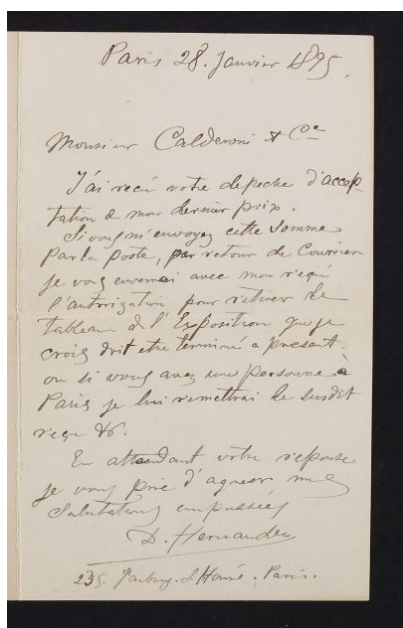 Paris 28. Janvier 1895.
Monsieur Calderoni & Cie
J'ai reçu votre depeche d'accep-
tation de mon dernier prix.
Si vous m'envoyez cette somme
par la poste, par retour de Courrier
je vous enverrai avec mon reçu
l'autorization pour retirer le
tableau de l'Exposition que je
crois doit etre terminé a present.
ou si vous avez une personne à
Paris je lui remettrai le susdit
reçu &c.
En attendant votre reponse
je vous prie d'agreer mes
Salutations empressées
D. Hernandez
235. Faubourg. St Honoré. Paris.